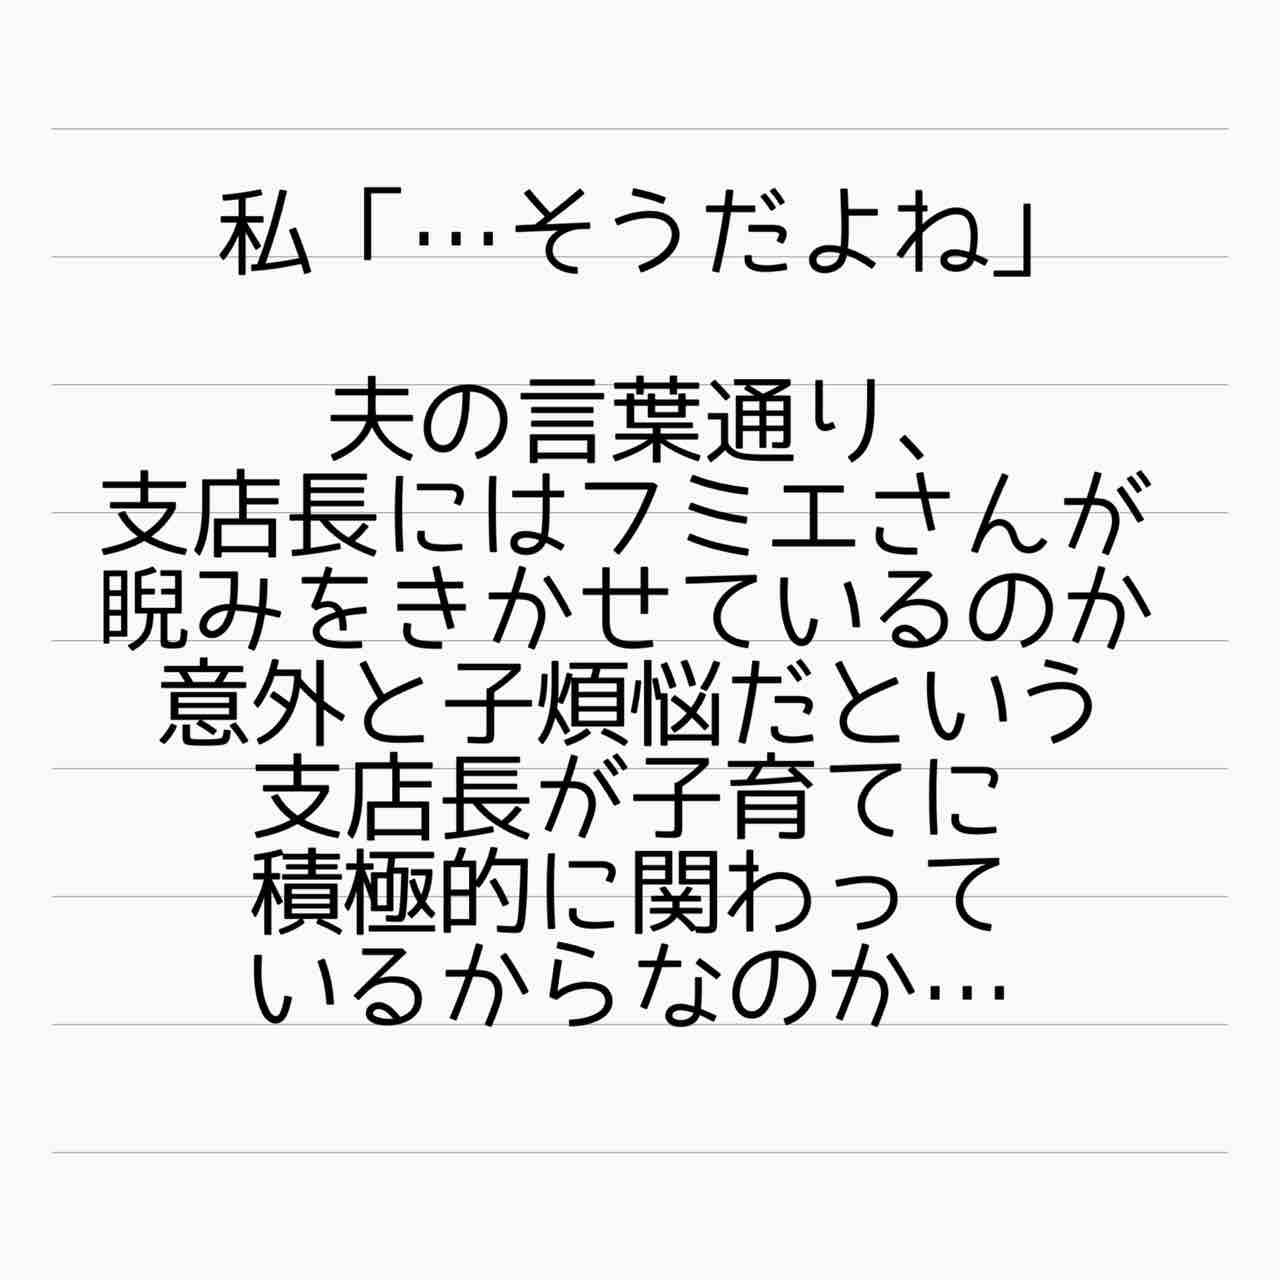 私「…そうだよね」
夫の言葉通り、
支店長にはフミエさんが
睨みをきかせているのか
意外と子煩悩だという
支店長が子育てに
積極的に関わって
いるからなのか…